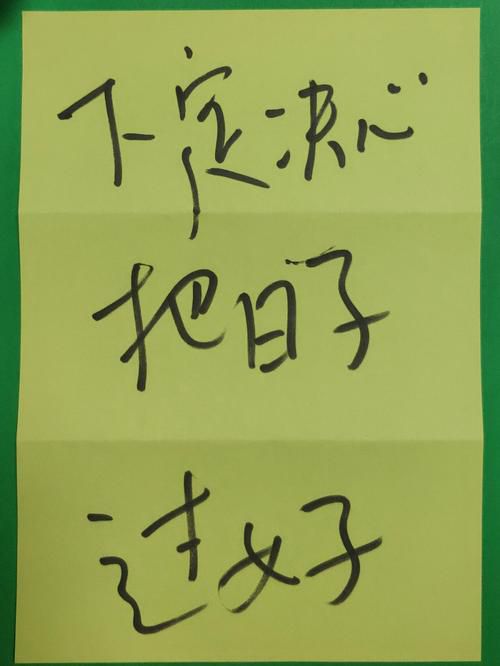 下定决心
把日子
过好